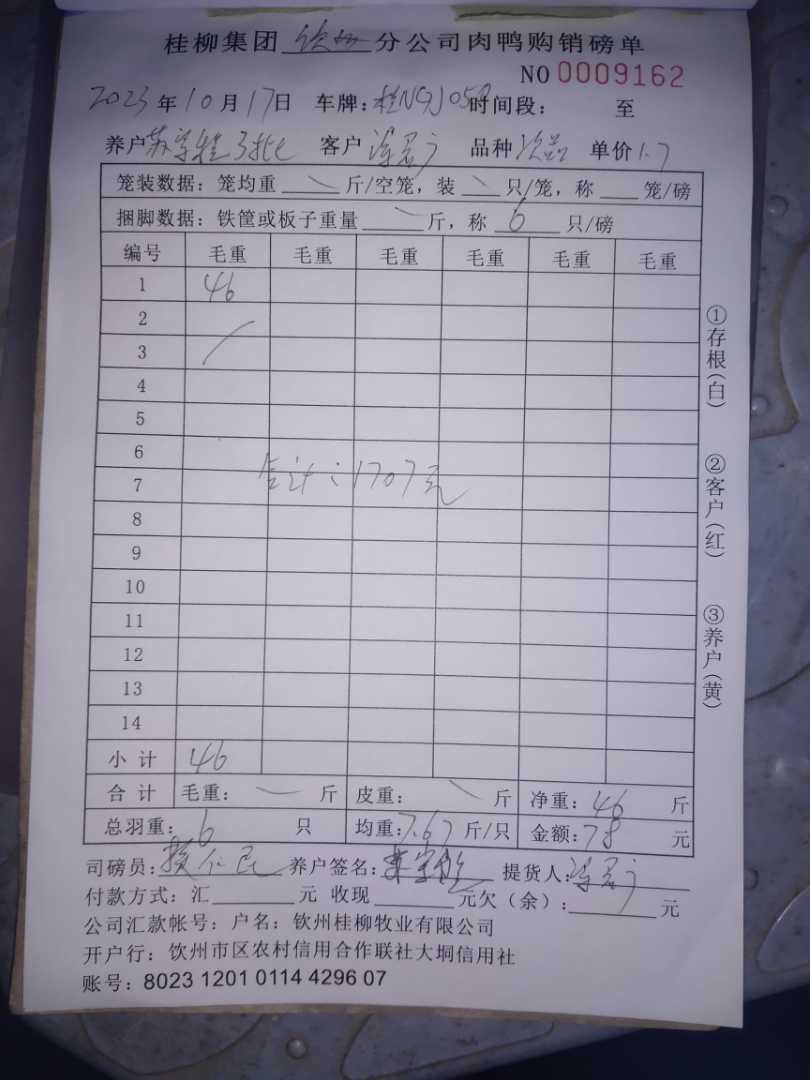 桂柳集团 钦州 分公司肉鸭购销磅单
NO 0009162
2023年10月17日 车牌: 时间段: 至
养户 客户 品种 次品 单价 1.7
笼装数据:笼均重 斤/空笼,装 只/笼,称 笼/磅
捆脚数据:铁筐或板子重量 斤,称 6 只/磅
编号 毛重 毛重 毛重 毛重 毛重 毛重
1 46
2
3
4
5
6
合计:1707元
7
8
9
10
11
12
13
14
小计 46
合计 毛重: 斤 皮重: 斤 净重:46 斤
总羽重:6 只 均重:7.67 斤/只 金额:78 元
司磅员: 养户签名: 提货人:
付款方式:汇 元 收现 元欠(余): 元
公司汇款帐号:户名:钦州桂柳牧业有限公司
开户行:钦州市区农村信用合作联社大垌信用社
账号:8023 1201 0114 4296 07
①存根(白)
②客户(红)
③养户(黄)